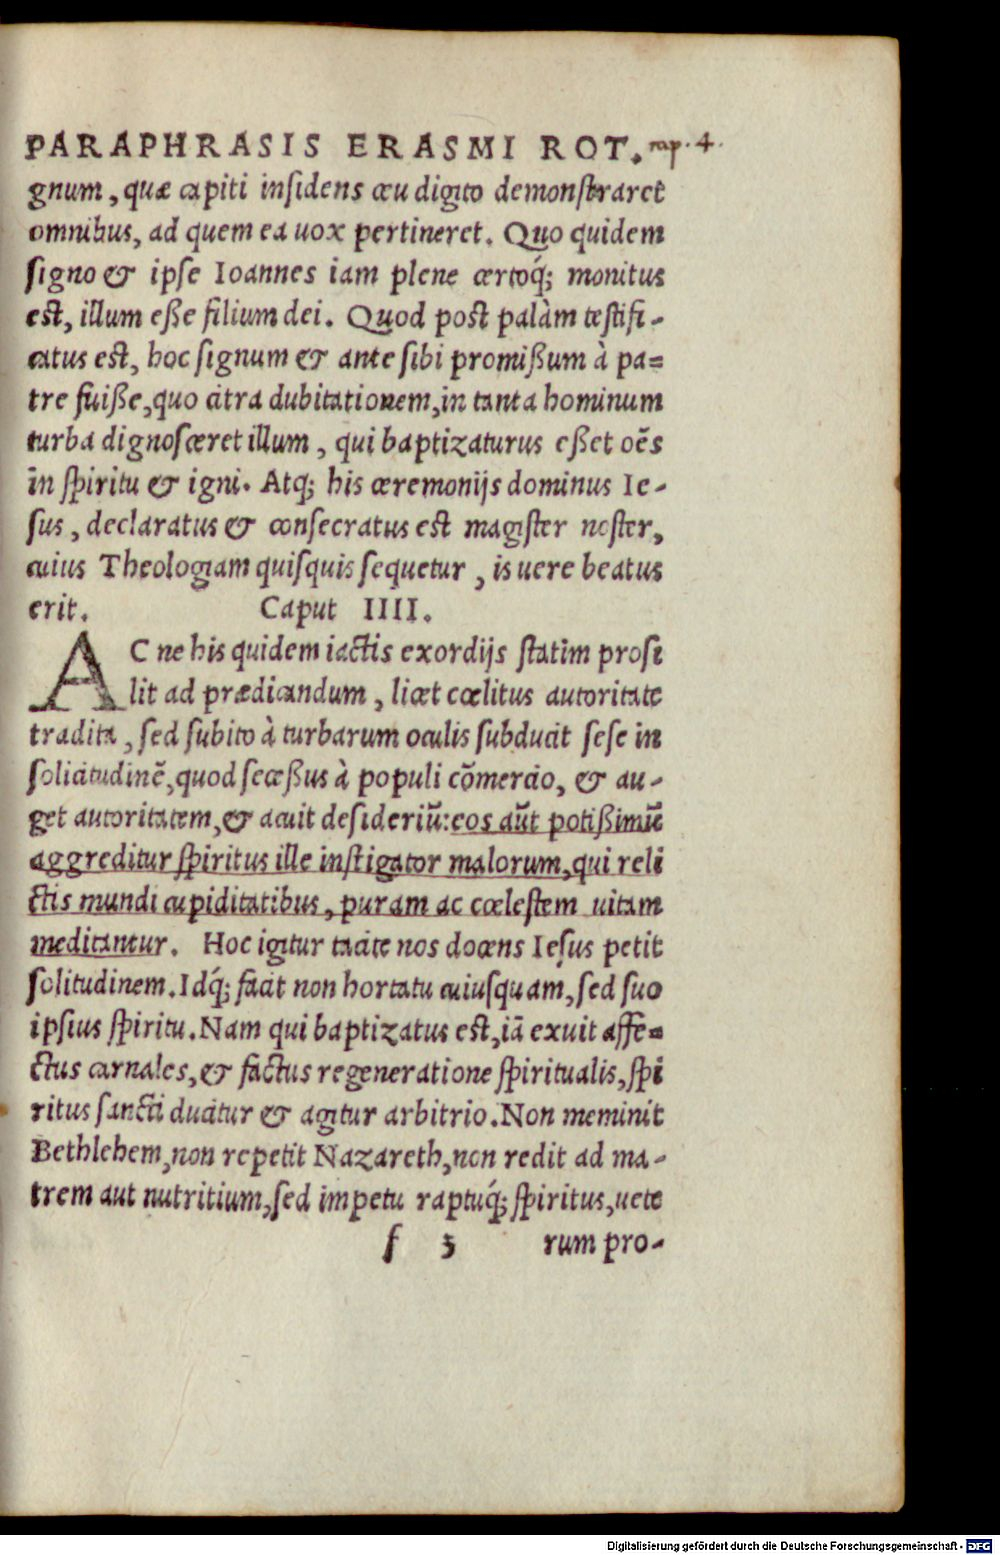 PARAPHRASIS ERASMI ROT. cap. 4.
gnum, quæ capiti insidens ceu digito demonstraret
omnibus, ad quem ea uox pertineret. Quo quidem
signo & ipse Ioannes iam plene certoq́; monitus
est, illum esse filium dei. Quod post palàm testifi-
catus est, hoc signum & ante sibi promißum à pa=
tre fuiße, quo citra dubitationem, in tanta hominum
turba dignosceret illum, qui baptizaturus eßet oẽs
in spiritu & igni. Atq; his ceremonijs dominus Ie-
sus, declaratus & consecratus est magister noster,
cuius Theologiam quisquis sequetur, is uere beatus
erit. Caput IIII.
AC ne his quidem iactis exordijs statim prosi
lit ad prædicandum, licet cœlitus autoritate
tradita, sed subito à turbarum oculis subducit sese in
solicitudinẽ, quod seceßus à populi cõmercio, & au-
get autoritatem, & acuit desideriũ: eos aũt potißimũ
aggreditur spiritus ille instigator malorum, qui reli
ctis mundi cupiditatibus, puram ac cœlestem uitam
meditantur. Hoc igitur tacite nos docens Iesus petit
solitudinem. Idq́; facit non hortatu cuiusquam, sed suo
ipsius spiritu. Nam qui baptizatus est, iã exuit affe=
ctus carnales, & factus regeneratione spiritualis, spi
ritus sancti ducitur & agitur arbitrio. Non meminit
Bethlehem, non repetit Nazareth, non redit ad ma-
trem aut nutritium, sed impetu raptuq́; spiritus, uete
f 3 rum pro-
Digitalisierung gefördert durch die Deutsche Forschungsgemeinschaft - DFG